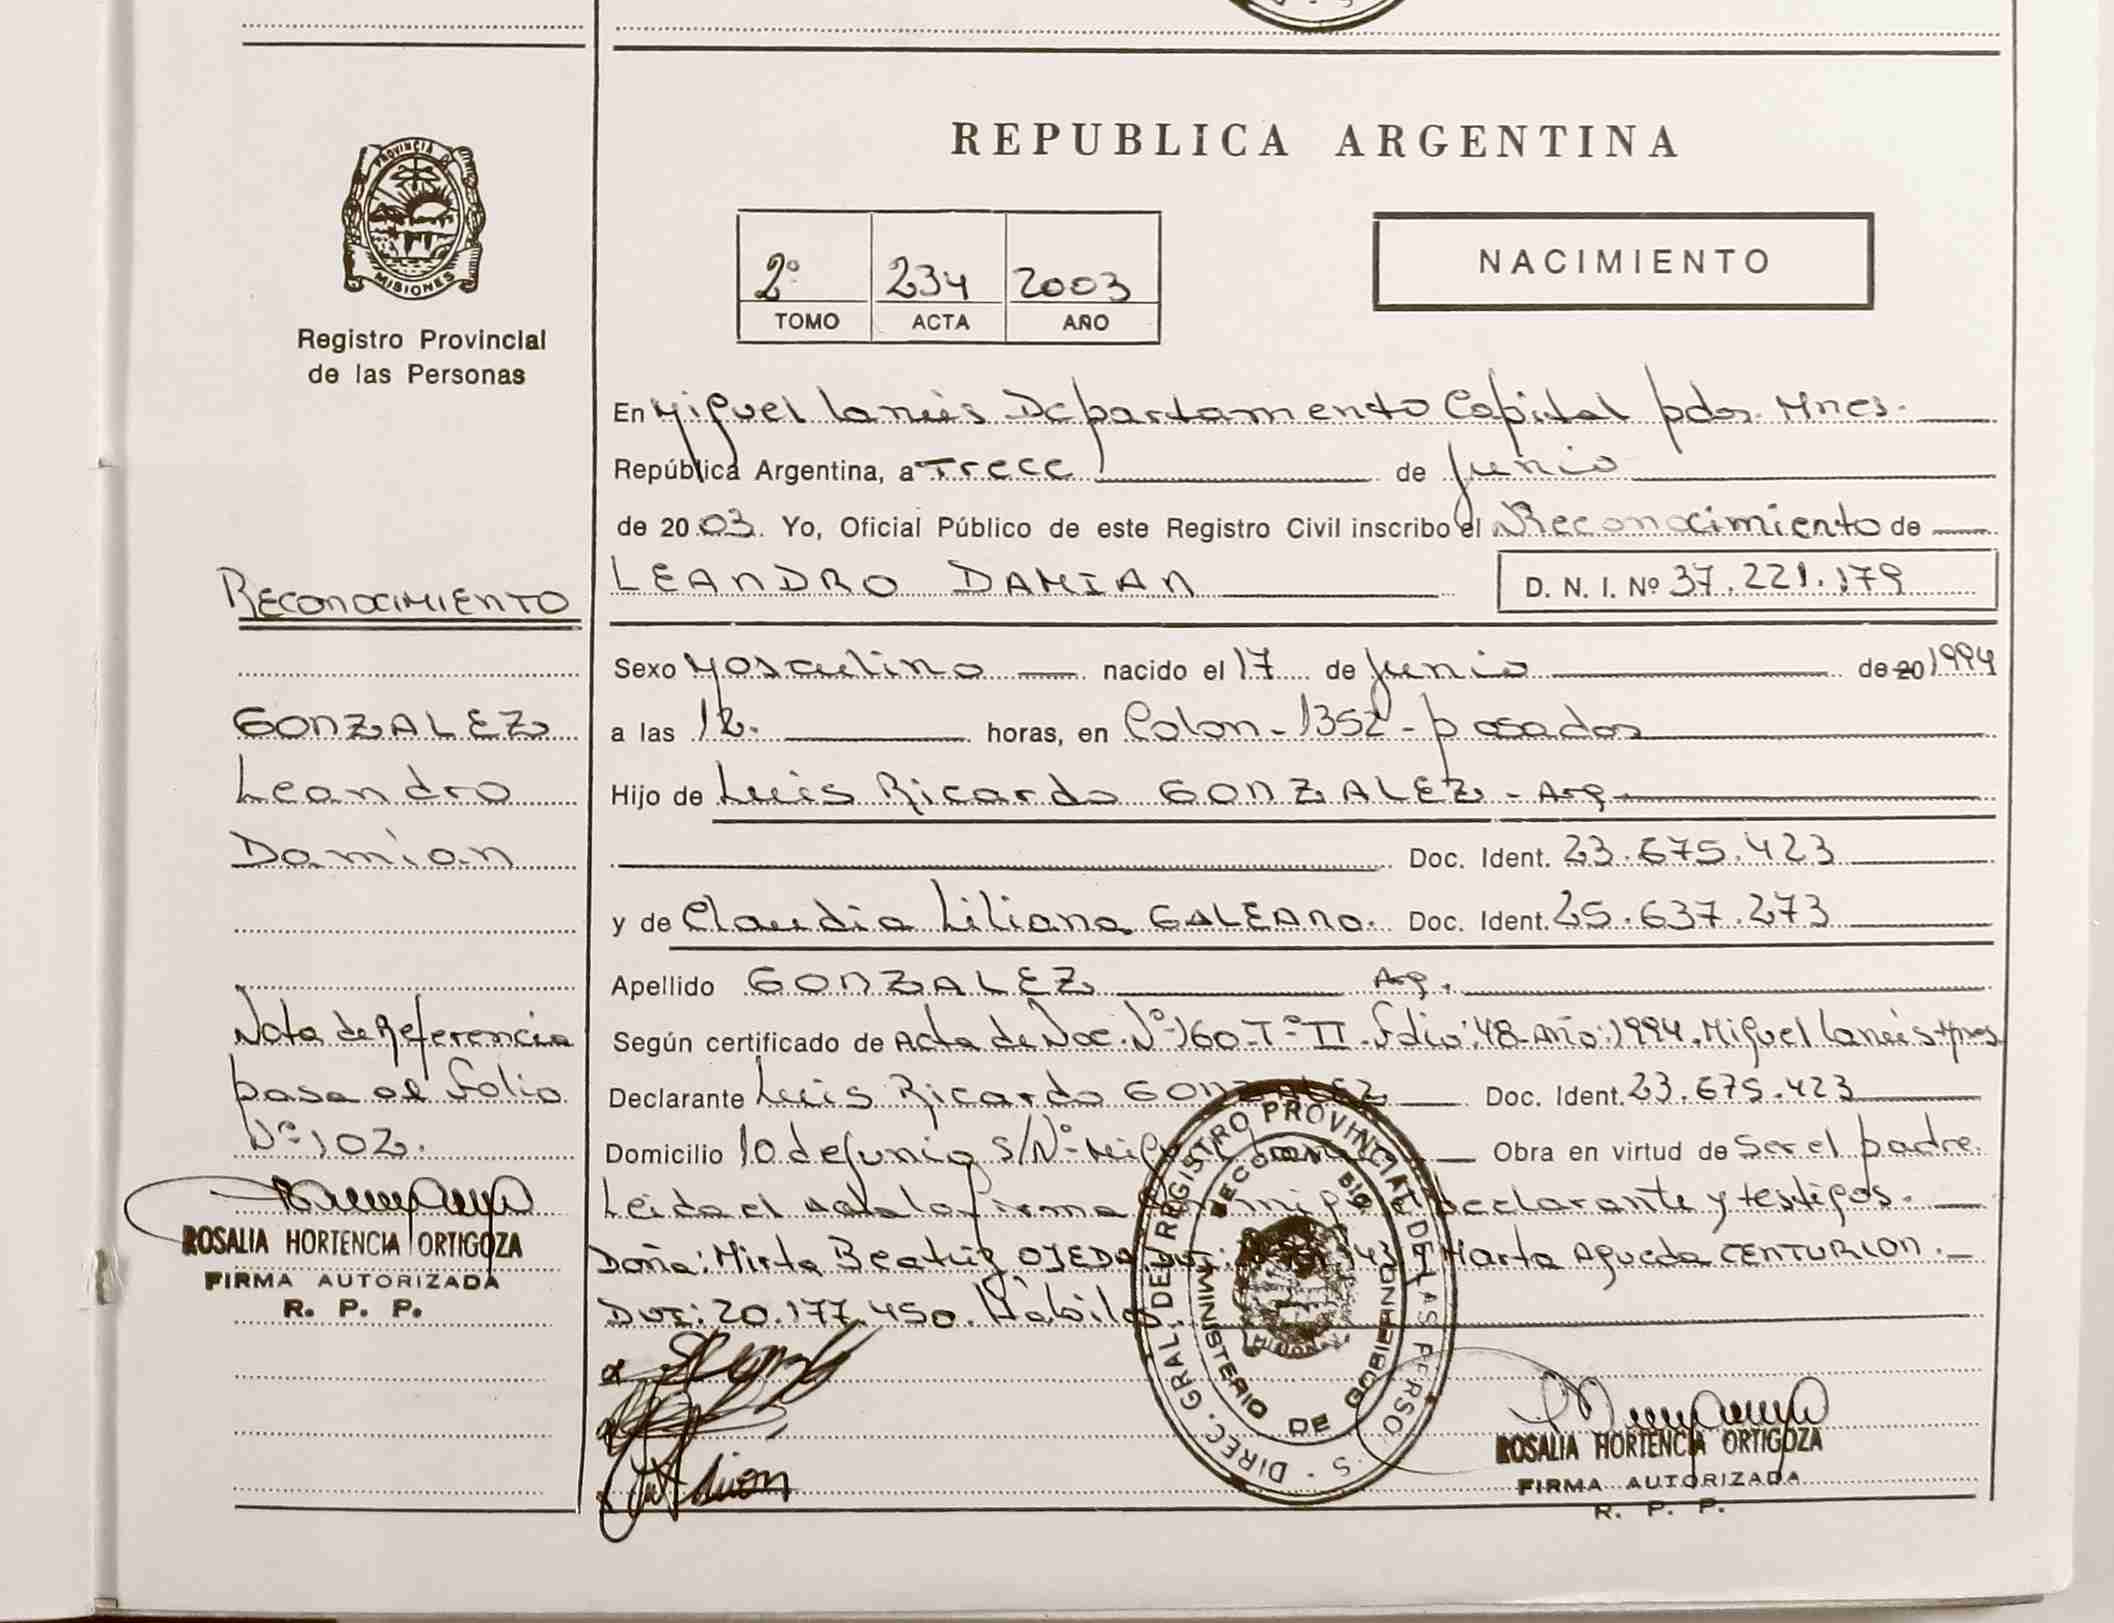 PROVINCIA DE
MISIONES
Registro Provincial
de las Personas
RECONOCIMIENTO
GONZALEZ
Leandro
Damian
Nota de Referencia
pasa al folio
Nº 102.
ROSALIA HORTENCIA ORTIGOZA
FIRMA AUTORIZADA
R. P. P.
REPUBLICA ARGENTINA
2º 234 2003
TOMO ACTA AÑO
NACIMIENTO
En Miguel Lanús Departamento Capital pdas. Mnes.
República Argentina, a Trece de Junio
de 2003. Yo, Oficial Público de este Registro Civil inscribo el Reconocimiento de
LEANDRO DAMIAN D. N. I. Nº 37.221.179
Sexo Masculino nacido el 17 de Junio de 20 1994
a las 12. horas, en Colon - 1352 - posadas
Hijo de Luis Ricardo GONZALEZ - Arg.
Doc. Ident. 23.675.423
y de Claudia Liliana GALEANO. Doc. Ident. 25.637.273
Apellido GONZALEZ Arg.
Según certificado de Acta de Nac. Nº 160-Tº II. folio: 48 Año: 1994. Miguel Lanús-Mnes
Declarante Luis Ricardo GONZALEZ Doc. Ident. 23.675.423
Domicilio 10 de Junio S/Nº Obra en virtud de ser el padre.
Leida el Acta la firma declarante y testigos.
Doña: Mirta Beatriz OJEDA Marta Agueda CENTURION.
DNI: 20.177.450.
DIREC. GRAL. DEL REGISTRO PROVINCIAL DE LAS PERSO S.
MINISTERIO DE GOBIERNO
ROSALIA HORTENCIA ORTIGOZA
FIRMA AUTORIZADA
R. P. P.